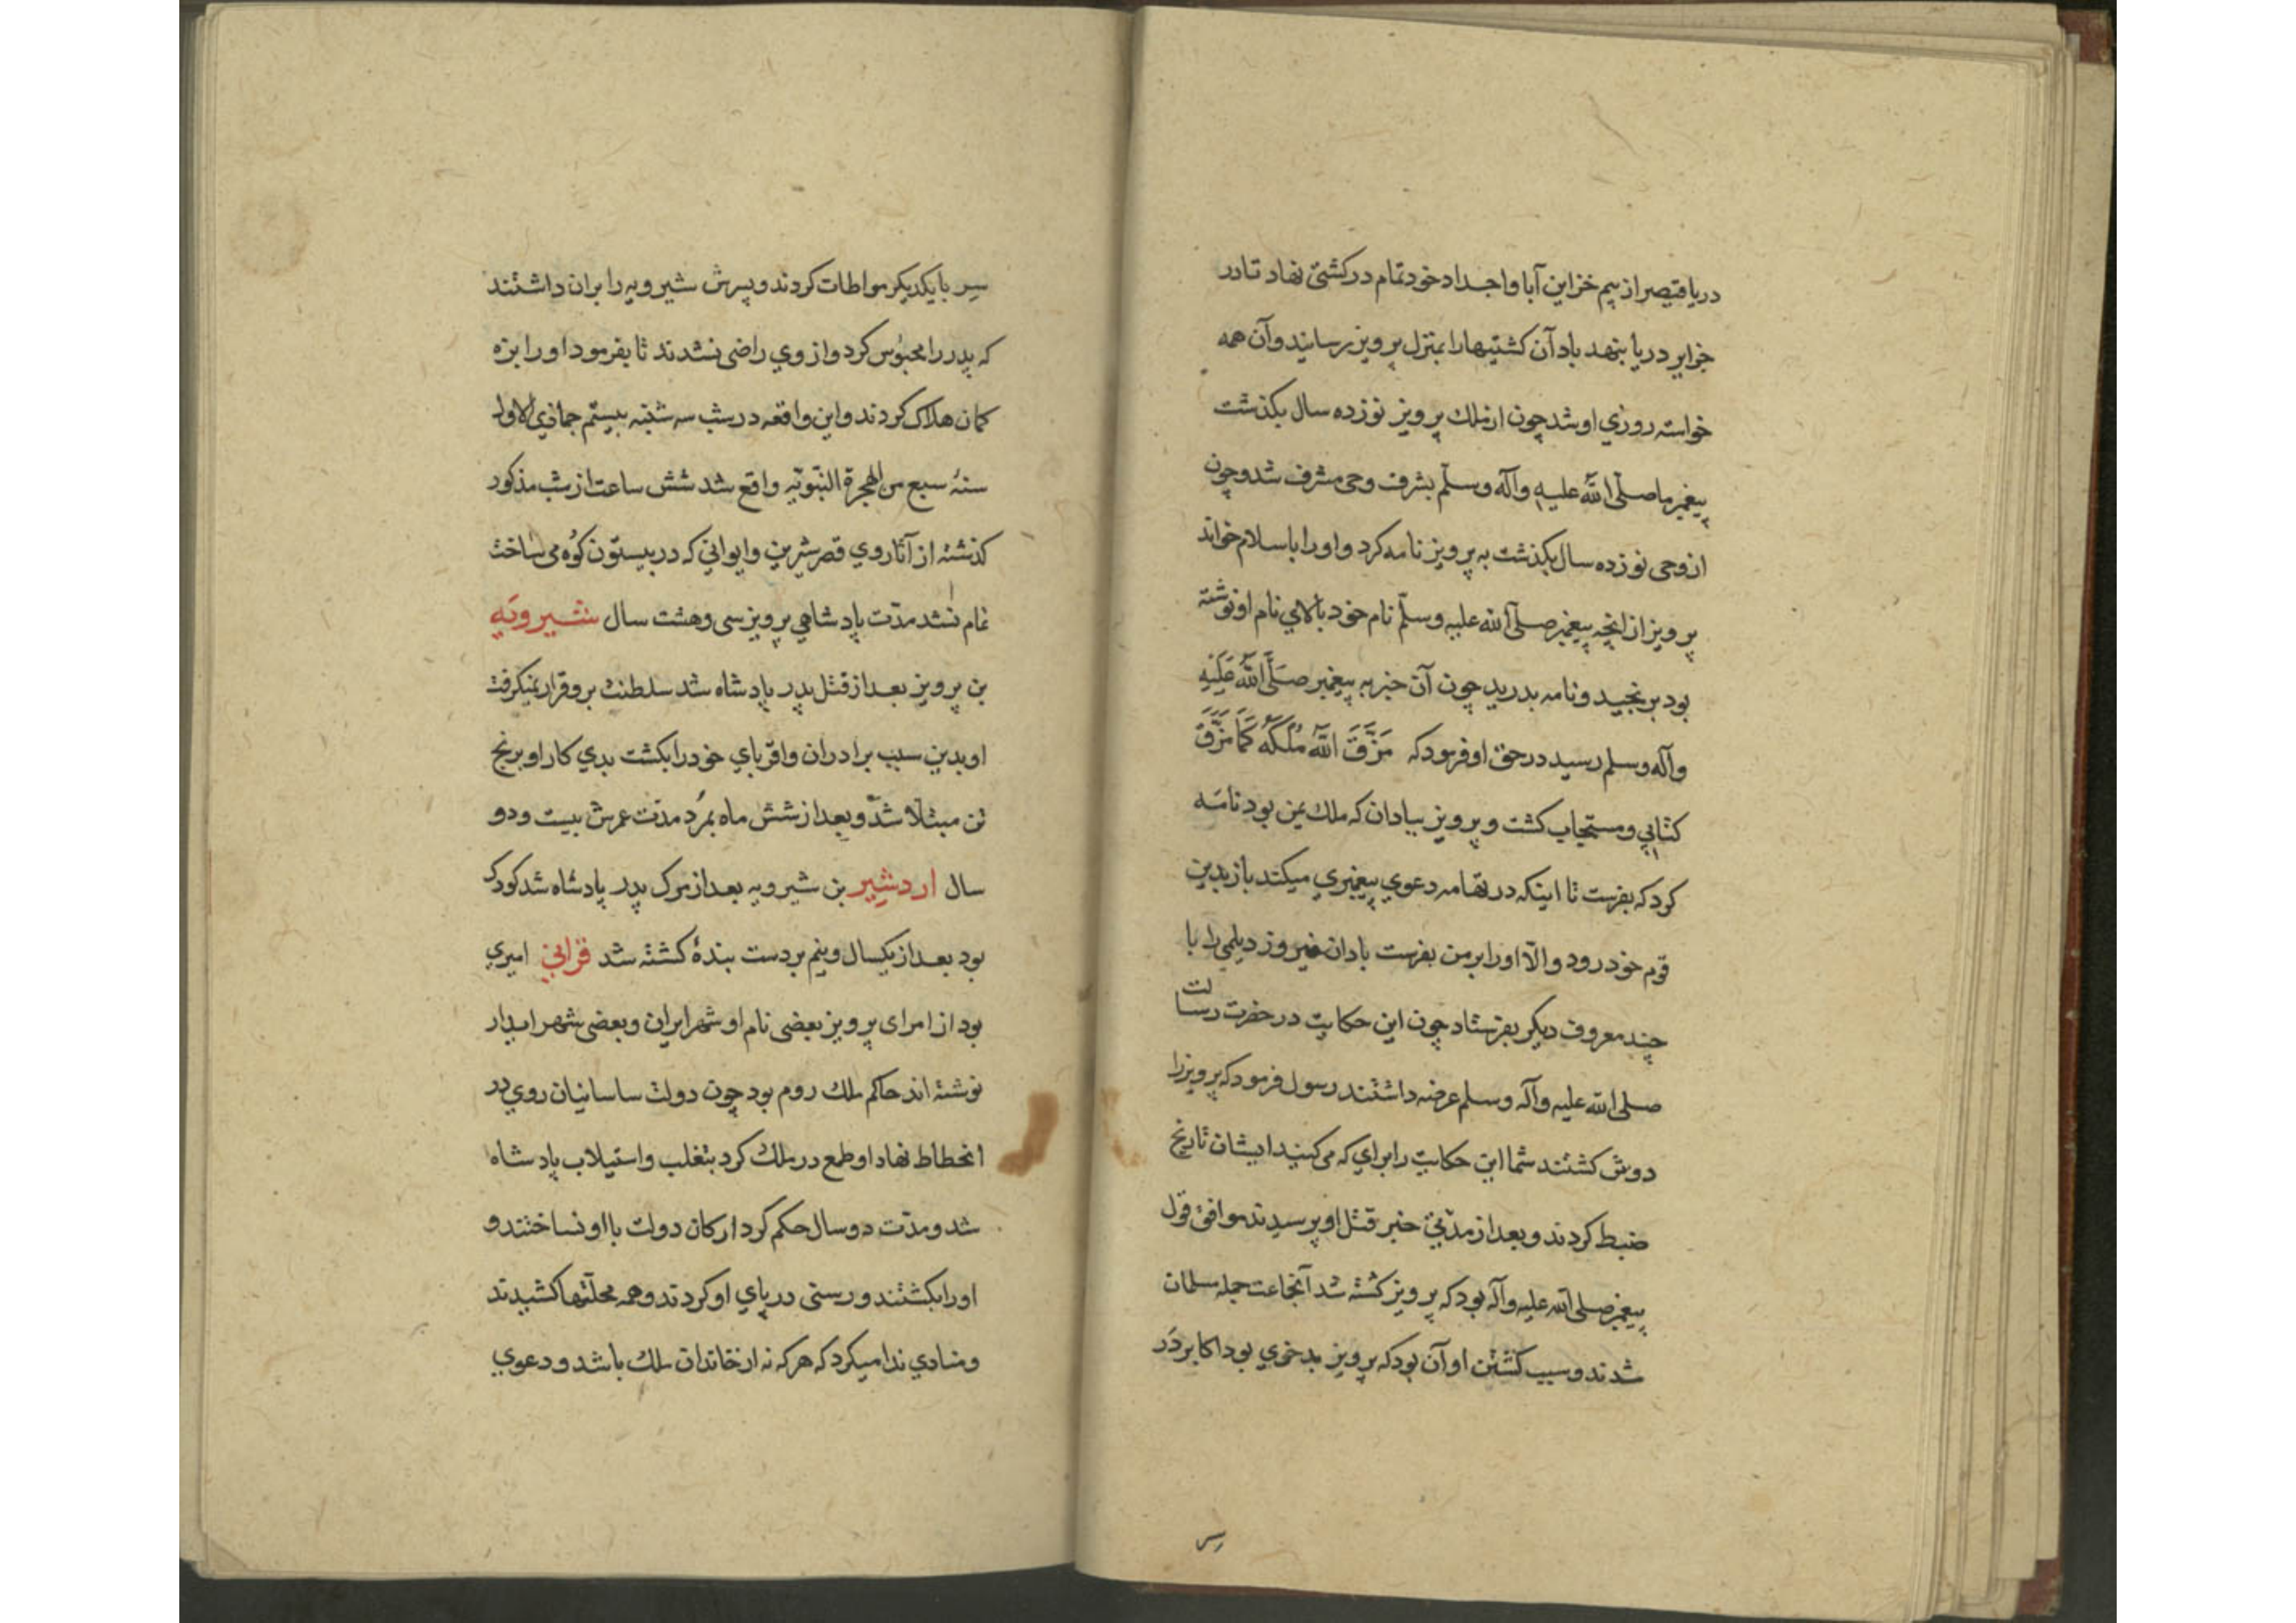 دریا قیصر از بیم خزاین آبا و اجداد خود تمام در کشتی نهاد تا در
جزایر دریا بنهد باد آن کشتیها را بمنزل پرویز رسانید و آن همه
خواسته روزي او شد چون از ملك پرویز نوزده سال بکذشت
پیغمبر ما صلّی اللّه علیه وآله وسلّم بشرف وحی مشرف شد و چون
از وحی نوزده سال بکذشت به پرویز نامه کرد و او را باسلام خواند
پرویز از انچه پیغمبر صلّی اللّه علیه وسلّم نام خود بالاي نام او نوشته
بود برنجید و نامه بدرید چون آن خبر به پیغمبر صَلَّی اللّهُ عَلَیْهِ
وآله وسلم رسید در حق او فرمود که مَزَّقَ اللّهُ مُلْكَهُ كَمَا مَزَّقَ
کتابي و مستجاب کشت و پرویز ببادان که ملك یمن بود نامه
کرد که بفرست تا اینکه در تهامه دعوي پیغمبري میکند باز بدین
قوم خود رود و الّا او را بر من بفرست بادان فیروز دیلمي را با
چند معروف دیکر بفرستاد چون این حکایت در حضرت رسالت
صلی اللّه علیه وآله وسلم عرضه داشتند رسول فرمود که پرویز را
دوش کشتند شما این حکایت را براي که می کنید ایشان تاریخ
ضبط کردند و بعد از مدّتي خبر قتل او پرسیدند موافق قول
پیغمبر صلی اللّه علیه وآله بود که پرویز کشته شد آنجماعت جمله مسلمان
شدند و سبب کشتن او آن بود که پرویز بدخوي بود اکابر دَر
سر
سِر با یکدیکر مواطات کردند و پسرش شیرویه را بران داشتند
که پدر را محبوُس کرد و از وي راضی نشدند تا بفرمود او را بزه
کمان هلاک کردند و این واقعه در شب سه شنبه بیستم جماذي الاول
سنهٔ سبع من الهجرة النبّویّه واقع شد شش ساعت از شب مذکور
کذشته از آثار وي قصر شیرین و ایواني که در بیستون کوُه می ساخت
تمام نشد مدّت پادشاهي پرویز سی و هشت سال شیرویَه
بن پرویز بعد از قتل پدر پادشاه شد سلطنت برو قرار نمیکرفت
او بدین سبب برادران و اقرباي خود را بکشت بدي کار او برنج
تن مبتلا شد و بعد از شش ماه بمُرد مدّت عمرش بیست و دو
سال اردشیر بن شیرویه بعد از مرک پدر پادشاه شد کودک
بود بعد از یکسال و نیم بر دست بندهٔ کشته شد قرایي امیري
بود از امراى پرویز بعضی نام او شهرایران و بعضی شهر ابدار
نوشتهٔ اند حاکم ملك روم بود چون دولت ساسانیان روي در
انحطاط نهاد او طمع در ملك کرد بتغلب و استیلاب پادشاه
شد و مدّت دو سال حکم کرد ارکان دولت با او نساختند و
او را بکشتند و رسنی در پاي او کردند و همه محلّتها کشیدند
و منادي ندا میکرد که هر که نه از خاندان ملك باشد و دعوي